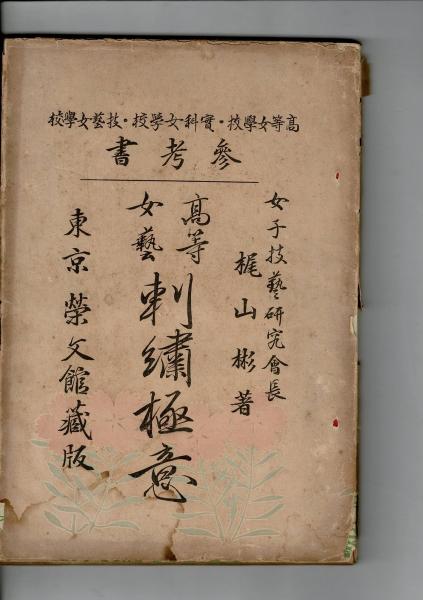 高等女學校・實科女学校・技藝女學校
參考書
女子技藝研究會長
梶山彬著
高等
女藝
刺繡極意
東京榮文館藏版